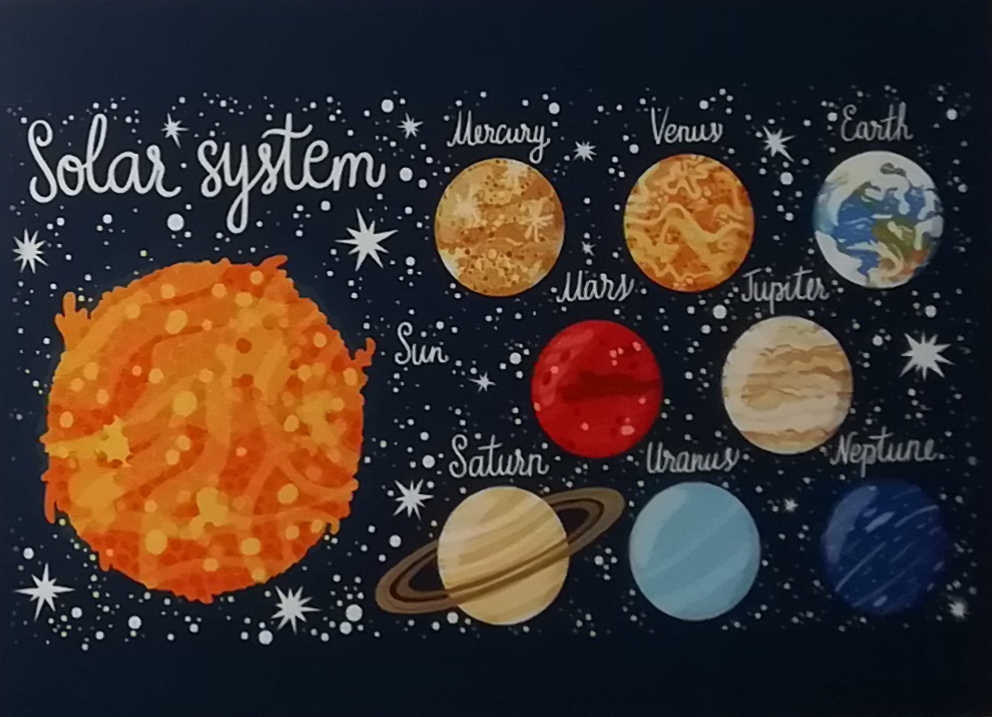 Solar system
Mercury
Venus
Earth
Sun
Mars
Jupiter
Saturn
Uranus
Neptune